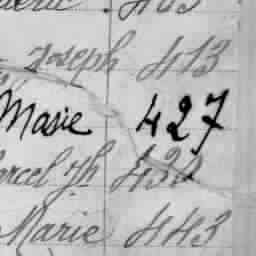 Joseph 413
Marie 427
Marcel Jh 432
Marie 443